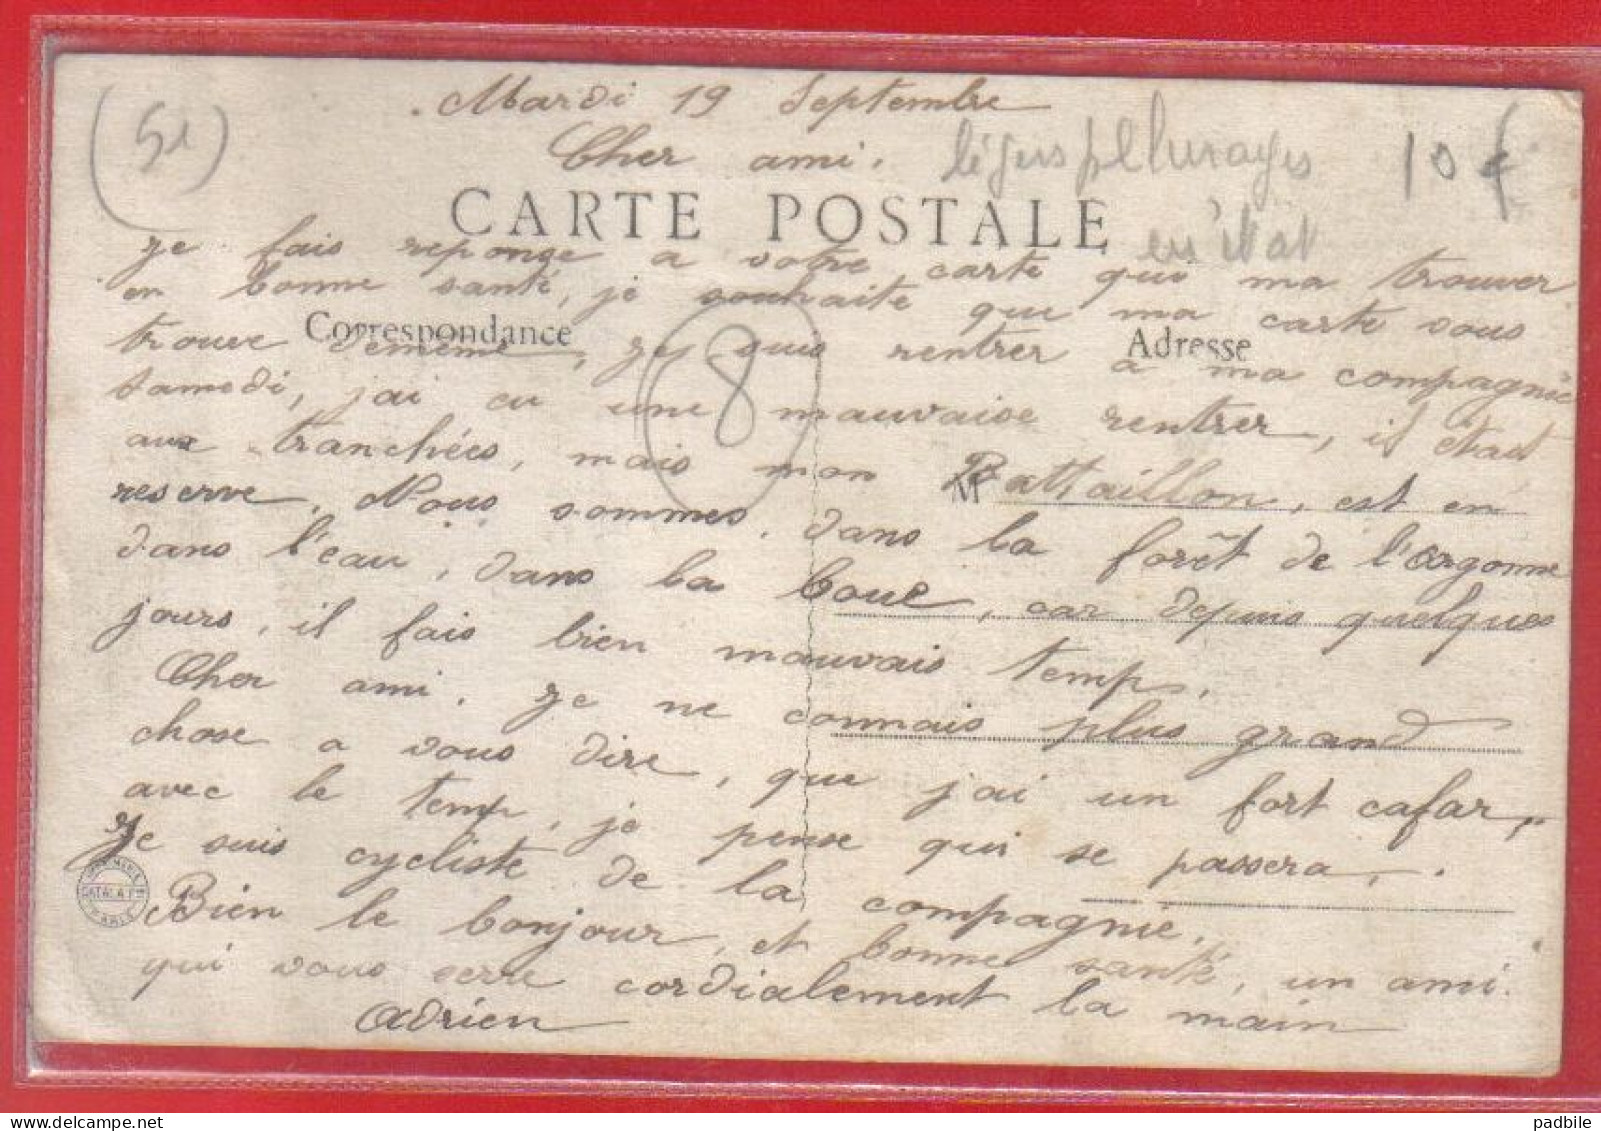 (51)
Mardi 19 Septembre
Cher ami.
légers pelhurages
en l'état
10 €
CARTE POSTALE
Je fais reponse a votre carte qui ma trouver
en bonne santé, je souhaite que ma carte vous
Correspondance
Adresse
trouve demême, je suis rentrer a ma compagnie
samedi, jai eu une mauvaise rentrer, il était
8
aux tranchées, mais mon Battaillon, est en
reserve. Nous sommes, dans la forêt de l'argonne
dans l'eau, dans la boue, car depuis quelques
jours, il fais bien mauvais temps.
Cher ami. Je ne connais plus grand
chose a vous dire, que j'ai un fort cafar,
avec le temp, je pense qui se passera,.
Je suis cycliste de la compagnie.
Bien le bonjour, et bonne santé, un ami.
qui vous serre cordialement la main
Adrien
padbile